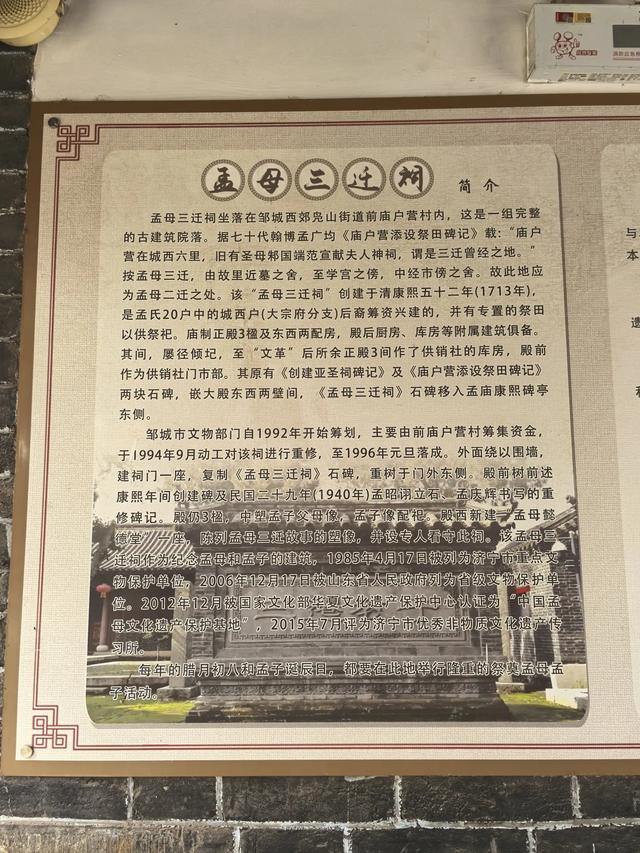 孟母三迁祠 简介
孟母三迁祠坐落在邹城西郊凫山街道前庙户营村内，这是一组完整
的古建筑院落。据七十代翰博孟广均《庙户营添设祭田碑记》载：“庙户
营在城西六里，旧有圣母邾国端范宣献夫人神祠，谓是三迁曾经之地。”
按孟母三迁，由故里近墓之舍，至学宫之傍，中经市傍之舍。故此地应
为孟母二迁之处。该“孟母三迁祠”创建于清康熙五十二年(1713年)，
是孟氏20户中的城西户(大宗府分支)后裔筹资兴建的，并有专置的祭田
以供祭祀。庙制正殿3楹及东西两配房，殿后厨房、库房等附属建筑俱备。
其间，屡径倾圮，至“文革”后所余正殿3间作了供销社的库房，殿前
作为供销社门市部。其原有《创建亚圣祠碑记》及《庙户营添设祭田碑记》
两块石碑，嵌大殿东西两壁间，《孟母三迁祠》石碑移入孟庙康熙碑亭
东侧。
邹城市文物部门自1992年开始筹划，主要由前庙户营村筹集资金，
于1994年9月动工对该祠进行重修，至1996年元旦落成。外面绕以围墙，
建祠门一座，复制《孟母三迁祠》石碑，重树于门外东侧。殿前树前述
康熙年间创建碑及民国二十九年(1940年)孟昭诩立石、孟庆辉书写的重
修碑记。殿仍3楹，中塑孟子父母像，孟子像配祀。殿西新建“孟母懿
德堂”一座，陈列孟母三迁故事的塑像，并设专人看守此祠。该孟母三
迁祠作为纪念孟母和孟子的建筑，1985年4月17日被列为济宁市重点文
物保护单位，2006年12月17日被山东省人民政府列为省级文物保护单
位。2012年12月被国家文化部华夏文化遗产保护中心认证为“中国孟
母文化遗产保护基地”，2015年7月评为济宁市优秀非物质文化遗产传
习所。
每年的腊月初八和孟子诞辰日，都要在此地举行隆重的祭奠孟母孟
子活动。
与
本